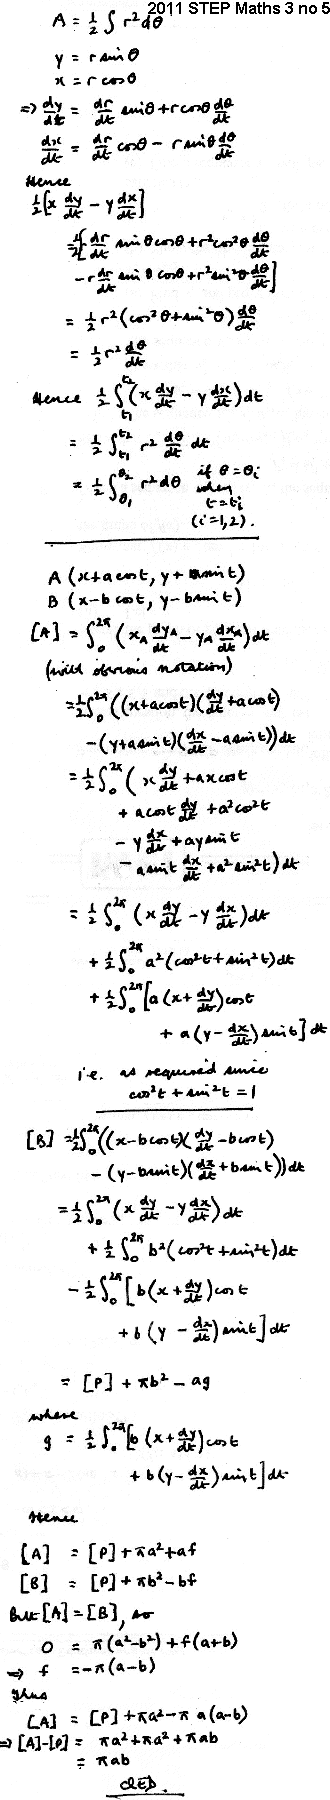 2011 STEP Maths 3 no 5
A = 1/2 ∫ r² dθ
y = r sin θ
x = r cos θ
⇒ dy/dt = dr/dt sin θ + r cos θ dθ/dt
dx/dt = dr/dt cos θ - r sin θ dθ/dt
Hence
1/2 [x dy/dt - y dx/dt]
= 1/2 [r dr/dt sin θ cos θ + r² cos² θ dθ/dt
- r dr/dt sin θ cos θ + r² sin² θ dθ/dt]
= 1/2 r² (cos² θ + sin² θ) dθ/dt
= 1/2 r² dθ/dt
Hence 1/2 ∫_{t₁}^{t₂} (x dy/dt - y dx/dt) dt
= 1/2 ∫_{t₁}^{t₂} r² dθ/dt dt
= 1/2 ∫_{θ₁}^{θ₂} r² dθ if θ = θᵢ
when
t = tᵢ
(i = 1, 2).
A (x + a cos t, y + a sin t)
B (x - b cos t, y - b sin t)
[A] = ∫_0^{2π} (x_A dy_A/dt - y_A dx_A/dt) dt
(with obvious notation)
= 1/2 ∫_0^{2π} ((x + a cos t)(dy/dt + a cos t)
- (y + a sin t)(dx/dt - a sin t)) dt
= 1/2 ∫_0^{2π} (x dy/dt + a x cos t
+ a cos t dy/dt + a² cos² t
- y dx/dt + a y sin t
- a sin t dx/dt + a² sin² t) dt
= 1/2 ∫_0^{2π} (x dy/dt - y dx/dt) dt
+ 1/2 ∫_0^{2π} a² (cos² t + sin² t) dt
+ 1/2 ∫_0^{2π} [a (x + dy/dt) cos t
+ a (y - dx/dt) sin t] dt
i.e. as required since
cos² t + sin² t = 1
[B] = 1/2 ∫_0^{2π} ((x - b cos t)(dy/dt - b cos t)
- (y - b sin t)(dx/dt + b sin t)) dt
= 1/2 ∫_0^{2π} (x dy/dt - y dx/dt) dt
+ 1/2 ∫_0^{2π} b² (cos² t + sin² t) dt
- 1/2 ∫_0^{2π} [b (x + dy/dt) cos t
+ b (y - dx/dt) sin t] dt
= [P] + πb² - ag
where
g = 1/2 ∫_0^{2π} [b (x + dy/dt) cos t
+ b (y - dx/dt) sin t] dt
Hence
[A] = [P] + πa² + af
[B] = [P] + πb² - bf
But [A] = [B], so
0 = π(a² - b²) + f(a + b)
⇒ f = -π(a - b)
Thus
[A] = [P] + πa² - π a(a - b)
⇒ [A] - [P] = πa² + πa² + πab
= πab
QED.